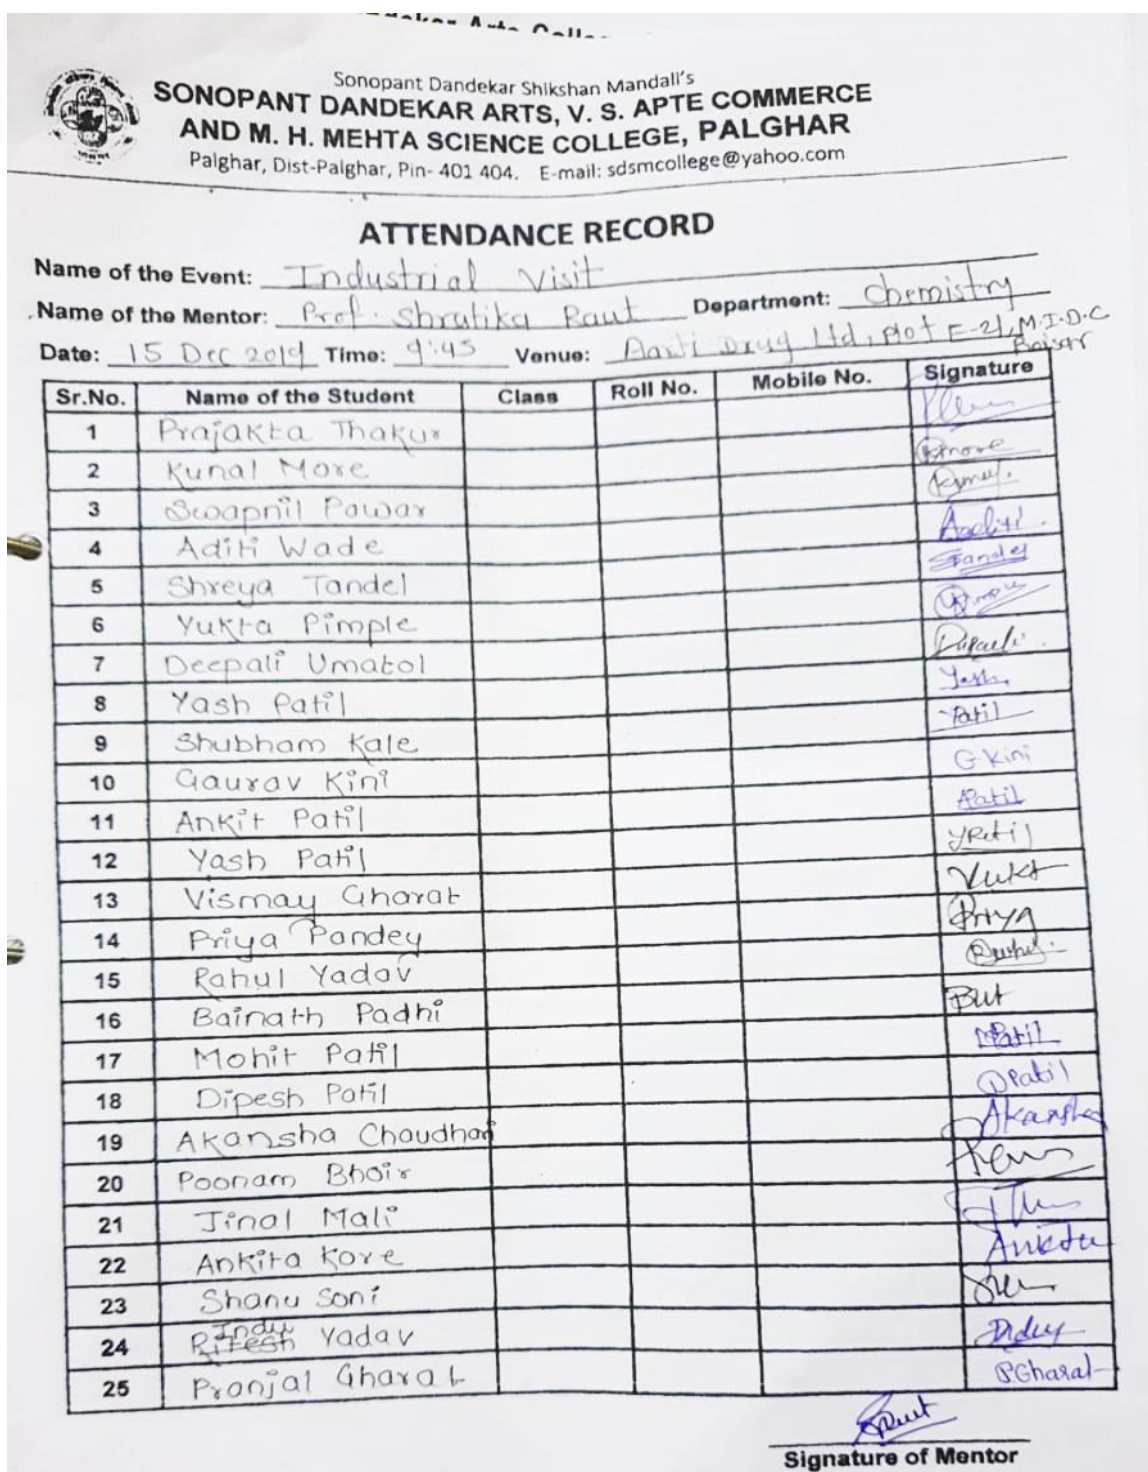 Sonopant Dandekar Shikshan Mandall's
SONOPANT DANDEKAR ARTS, V. S. APTE COMMERCE
AND M. H. MEHTA SCIENCE COLLEGE, PALGHAR
Palghar, Dist-Palghar, Pin- 401 404. E-mail: sdsmcollege@yahoo.com
ATTENDANCE RECORD
Name of the Event: Industrial Visit
Name of the Mentor: Prof. Shrutika Raut Department: Chemistry
Date: 15 Dec 2019 Time: 9:45 Venue: Aarti Drug Ltd, Plot E-21, M.I.D.C
Boisar
Sr.No. Name of the Student Class Roll No. Mobile No. Signature
1 Prajakta Thakur
2 Kunal More
3 Swapnil Pawar
4 Aditi Wade
5 Shreya Tandel Tandel
6 Yukta Pimple
7 Deepali Umatol
8 Yash Patil Yash
9 Shubham Kale Patil
10 Gaurav Kini G.Kini
11 Ankit Patil APatil
12 Yash Patil YPatil
13 Vismay Gharat
14 Priya Pandey Priya
15 Rahul Yadav
16 Bainath Padhi
17 Mohit Patil MPatil
18 Dipesh Patil DPatil
19 Akansha Choudhari Akansha
20 Poonam Bhoir
21 Jinal Mali
22 Ankita Kore Ankita
23 Shanu Soni
24 Indu Yadav
25 Pranjal Gharat P.Gharat
Signature of Mentor